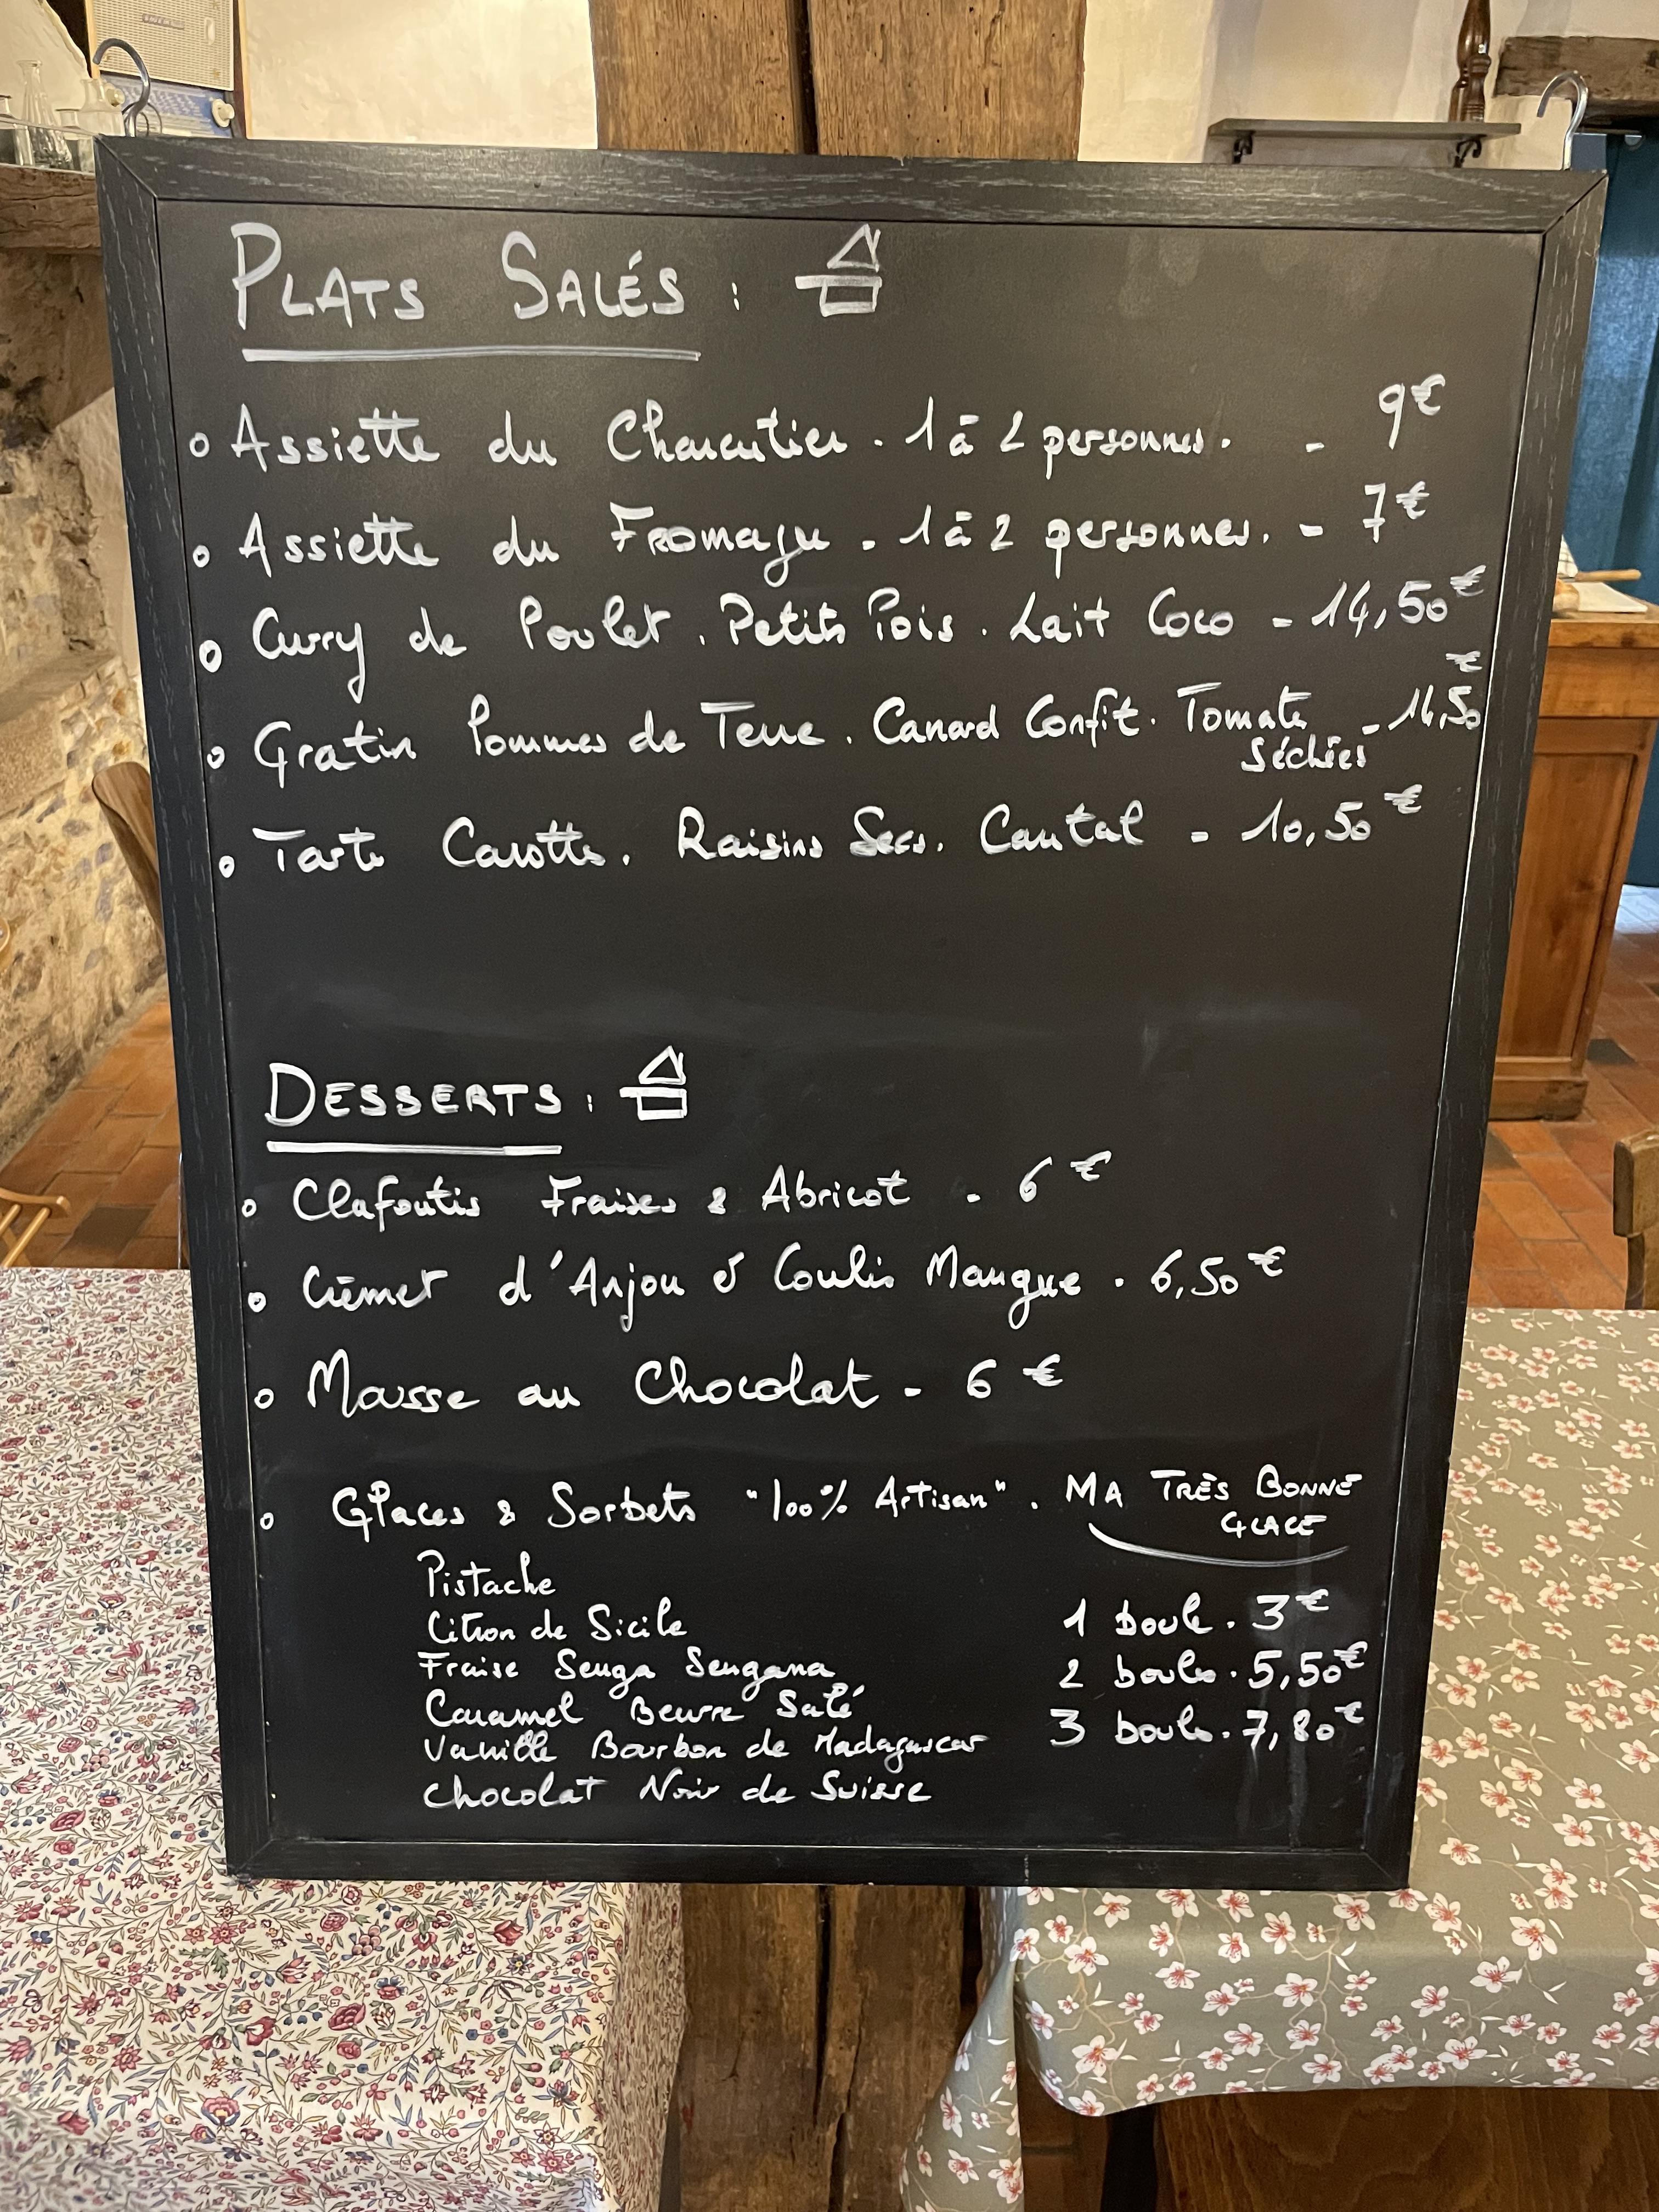 PLATS SALÉS :
o Assiette du Charcutier . 1 à 2 personnes. - 9€
o Assiette du Fromager . 1 à 2 personnes. - 7€
o Curry de Poulet . Petits Pois . Lait Coco - 14,50€
o Gratin Pommes de Terre . Canard Confit . Tomate Séchées -
o Tarte Carotte . Raisins Secs . Cantal - 10,50€
DESSERTS :
o Clafoutis Fraises & Abricot - 6€
o Crèmet d'Anjou & Coulis Mangue . 6,50€
o Mousse au Chocolat - 6€
o Glaces & Sorbets "100% Artisan" . MA TRÈS BONNE
GLACE
Pistache
Citron de Sicile 1 boule . 3€
Fraise Senga Sengana 2 boules . 5,50€
Caramel Beurre Salé 3 boules . 7,80€
Vanille Bourbon de Madagascar
Chocolat Noir de Suisse